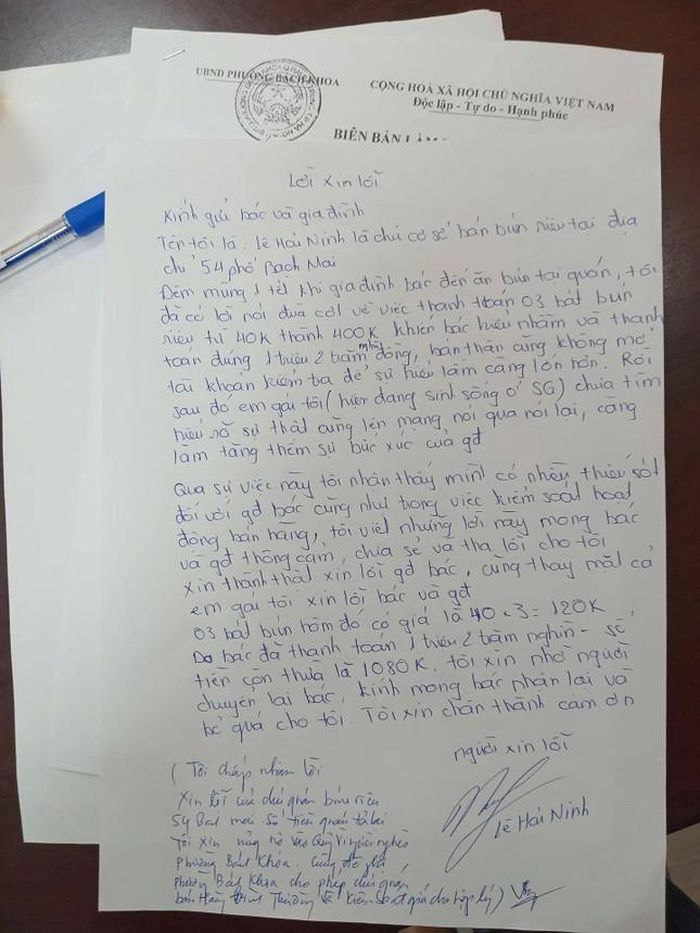 UBND PHƯỜNG BÁCH KHOA
CỘNG HOÀ XÃ HỘI CHỦ NGHĨA VIỆT NAM
Độc lập - Tự do - Hạnh phúc
BIÊN BẢN
Lời xin lỗi
Kính gửi bác và gia đình
Tên tôi là: Lê Hải Ninh là chủ cơ sở bán bún riêu tại địa
chỉ 54 phố Bạch Mai
Đêm mùng 1 tết khi gia đình bác đến ăn bún tại quán, tôi
đã có lời nói đùa cợt về việc thanh toán 03 bát bún
riêu từ 40K thành 400K khiến bác hiểu nhầm và thanh
toán đúng 1 triệu 2 trăm nghìn đồng, bản thân cũng không mở
tài khoản kiểm tra để sự hiểu lầm càng lớn hơn. Rồi
sau đó em gái tôi (hiện đang sinh sống ở SG) chưa tìm
hiểu rõ sự thật cũng lên mạng nói qua nói lại, càng
làm tăng thêm sự bức xúc của gđ
Qua sự việc này tôi nhận thấy mình có nhiều thiếu sót
đối với gđ bác cũng như trong việc kiểm soát hoạt
động bán hàng, tôi viết những lời này mong bác
và gđ thông cảm, chia sẻ và tha lỗi cho tôi
xin thành thật xin lỗi gđ bác, cũng thay mặt cả
em gái tôi xin lỗi bác và gđ
03 bát bún hôm đó có giá là 40 x 3 = 120K
Do bác đã thanh toán 1 triệu 2 trăm nghìn - số
tiền còn thừa là 1080K, tôi xin nhờ người
chuyển lại bác, kính mong bác nhận lại và
bỏ quá cho tôi. Tôi xin chân thành cám ơn
người xin lỗi
Lê Hải Ninh
( Tôi chấp nhận lời
xin lỗi của chủ quán bún riêu
54 Bạch mai số tiền quán trả lại
Tôi xin ủng hộ vào Quỹ Vì người nghèo
phường Bách Khoa. Cũng đề nghị
phường Bách Khoa cho phép chủ quán
bán Hàng bình Thường và kiểm soát giá cho hợp lý )